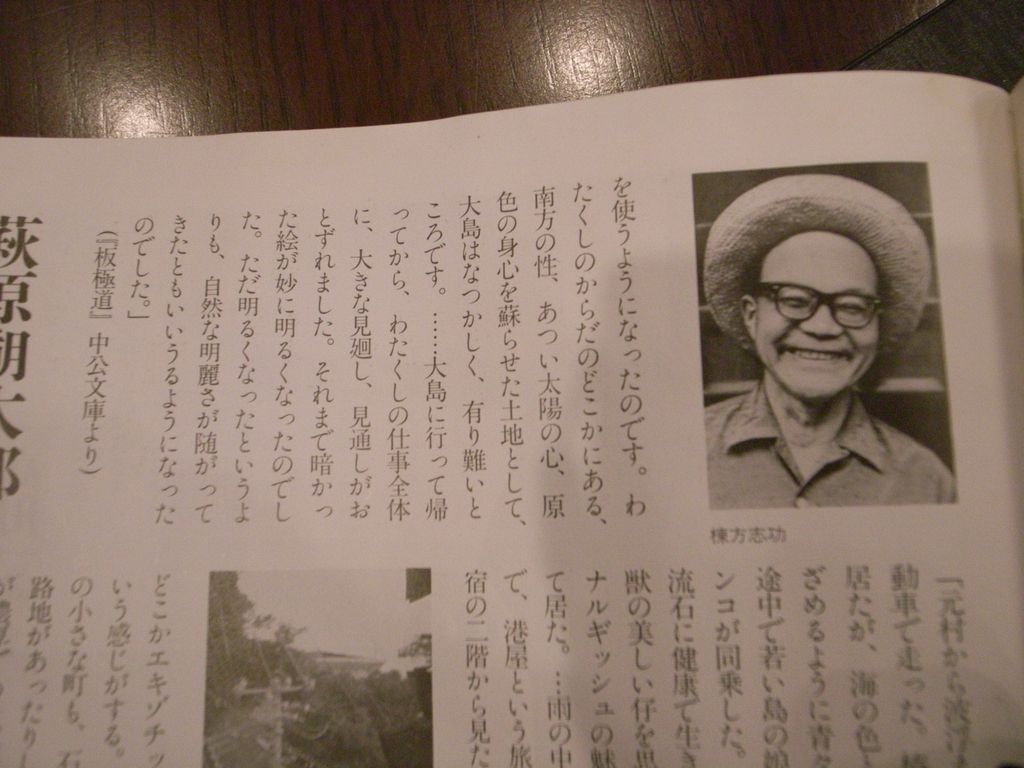 を使うようになったのです。わ
たくしのからだのどこかにある、
南方の性、あつい太陽の心、原
色の身心を蘇らせた土地として、
大島はなつかしく、有り難いと
ころです。……大島に行って帰
ってから、わたくしの仕事全体
に、大きな見廻し、見通しがお
とずれました。それまで暗かっ
た絵が妙に明るくなったのでし
た。ただ明るくなったというよ
りも、自然な明麗さが随がって
きたともいいうるようになった
のでした。」
(『板極道』中公文庫より)
棟方志功
「元村から波浮
動車で走った。
居たが、海の色
ざめるように青
途中で若い島の娘
ンコが同乗した。
流石に健康で生き
獣の美しい仔を思
ナルギッシュの魅
て居た。…雨の中
で、港屋という旅
宿の二階から見た
どこかエキゾチッ
いう感じがする。
の小さな町も、石
路地があったりし
萩原朔太郎